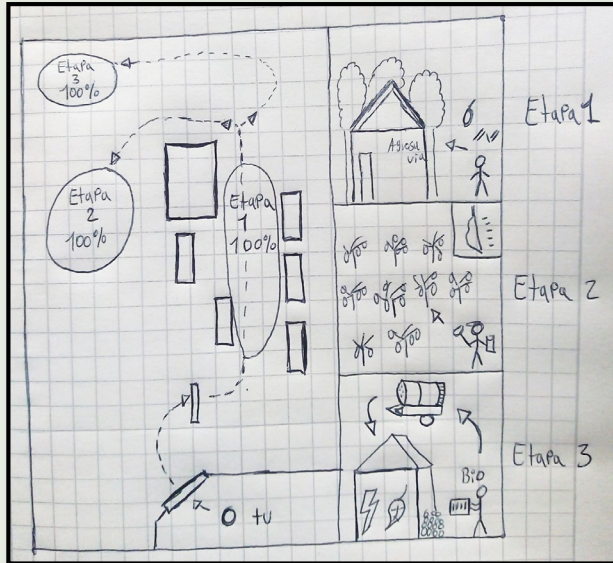 Etapa
3
100%
Etapa
2
100%
Etapa
1
100%
tu
6
Etapa 1
Etapa 2
Bio
Etapa 3